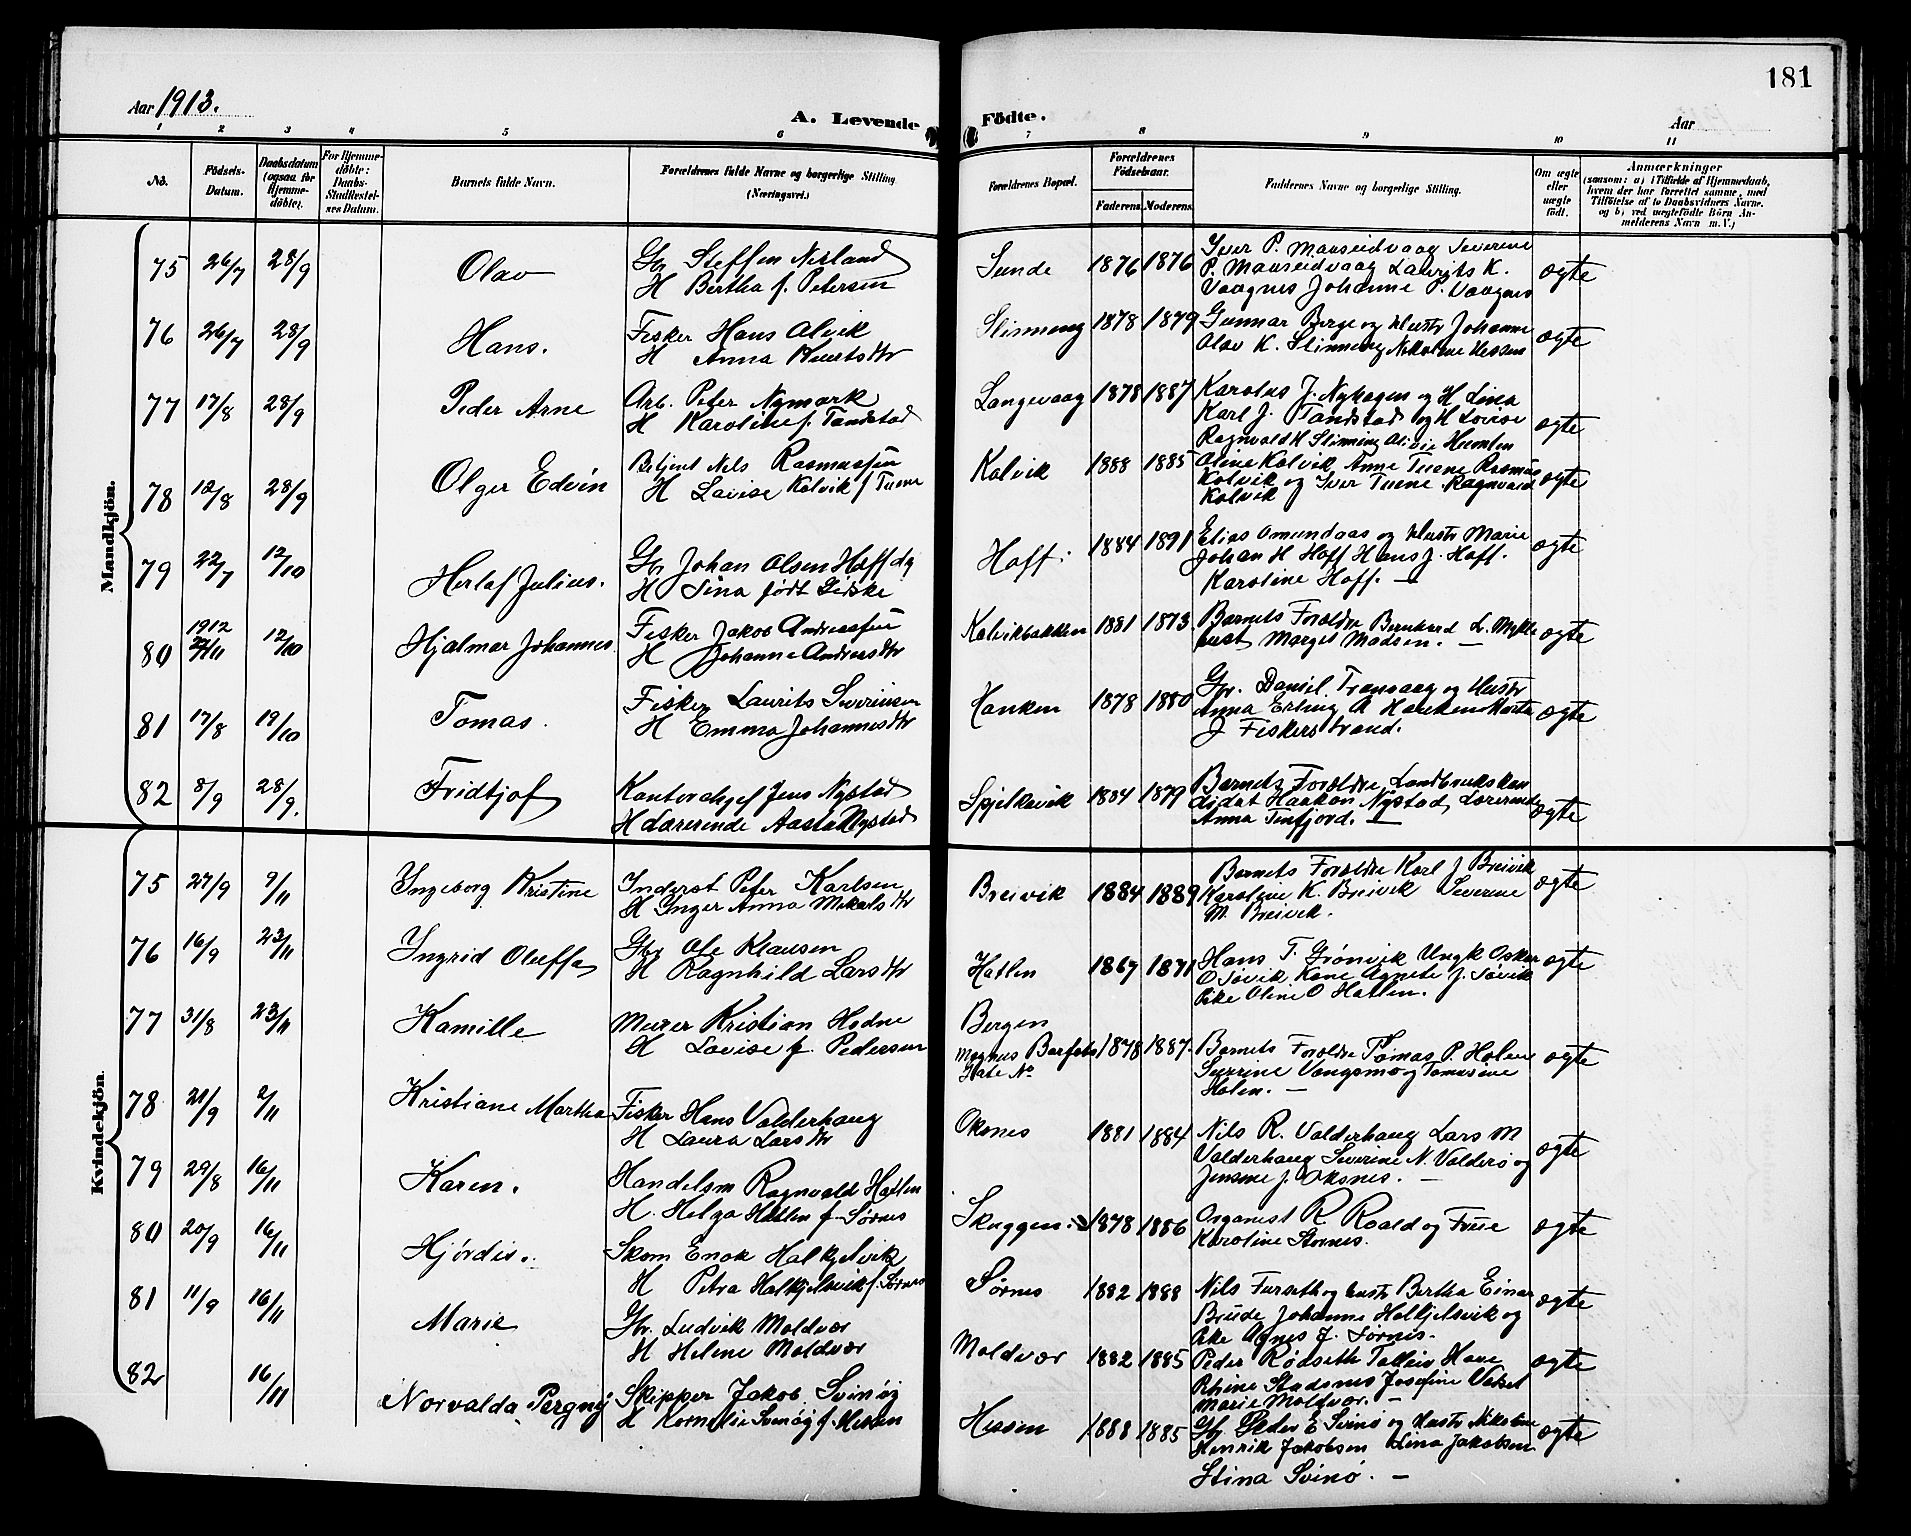 181
Aar 1913.
A. Levende Födte.
Aar
1 2 3 4 5 6 7 8 9 10 11
No.
Födsels-Datum.
Daabsdatum (ogsaa for Hjemme-döbte).
For Hjemme-döbte: Daabs-Stadfæstel-ses Datum.
Barnets fulde Navn.
Forældrenes fulde Navne og borgerlige Stilling (Næringsvei.)
Forældrenes Bopæl.
Forældrenes Födselsaar.
Faderens. Moderens.
Faddernes Navne og borgerlige Stilling.
Om ægte eller uægte födt.
Anmærkninger
(saasom: a) i Tilfælde af Hjemmedaab,
hvem der har forrettet samme, med
Tilföielse af to Daabsvidners Navne.
og b) ved uægtefödte Börn An-
melderens Navn m. V.)
Mandkjön.
75 26/7 28/9 Olav
Gbr Steffen Nesland
H Bertha f. Petersen
Sunde 1876 1876
Iver P. Mauseidvaag Severine
P. Mauseidvaag Laurits K.
Vaagnes Johanne P. Vaagnes
ægte
76 26/7 28/9 Hans.
Fisker Hans Alvik
H Anna Knutsdtr
Slinning 1878 1879
Gunnar Berge og Hustr Johanne
Olav K. Slinning Nikoline Hessen
ægte
77 17/8 28/9 Peder Arne
Arb. Peter Nymark
H Karoline f. Tandstad
Langevaag 1878 1887
Karolus J. Nyhagen og H Lina
Karl J. Tandstad og H Lovise
Ragnvald H Slinning Olivie Humlen
ægte
78 18/8 28/9 Olger Edvin
Betjent Nils Rasmussen
H Lovise Kolvik f Tuene
Kolvik 1888 1885
Oline Kolvik Anne Tuene Rasmus
Kolvik og Iver Tuene Ragnvald
Kolvik
ægte
79 22/7 12/10 Herlof Julius.
Gbr Johan Olsen Hoff dy
H Sina født Giske
Hoff. 1884 1891
Elias Amundaas og Hustr Marie
Johan H Hoff Hans J. Hoff.
Karoline Hoff. —
ægte
80 1912 22/11 12/10 Hjalmar Johannes
Fisker Jakob Andreassen
H Johanne Andreasdtr
Kolvikbakken 1881 1873.
Barnets Forældre Bernhard L. Mykle
bust Margit Madsen. —
ægte
81 17/8 19/10 Tomas.
Fisker Laurits Severinsen
H Emma Johannesdtr
Hanken 1878 1880
Gbr. Daniel Tranvaag og Hustr
Anna Erling A Hanken Marta
J Fiskerstrand.
ægte
82 8/9 28/9. Fridtjof
Kontorchef Jens Nystad
H Lærerinde Aasta Nystad
Spjelkavik 1884 1879
Barnets Forældre, Landbrukskan
didat Haakon Nystad, Lærerinde
Anna Tenfjord. —
ægte
Kvindekjön.
75 27/9 9/11 Ingeborg Kristine
Inderst Peter Karlsen
H Inger Anna Mikalsdtr
Breivik 1884 1889
Barnets Forældre Karl J Breivik
Karoline K. Breivik Severine
M. Breivik.
ægte
76 16/9 23/11 Ingrid Oluffa
Gbr Ole Klausen
H Ragnhild Larsdtr
Hatlen 1867 1871
Hans T. Grønvik Ungk Oskar
O Søvik Kone Agnete J. Søvik
Pike Oline O Hatlen.
ægte
77 31/8 23/11 Kamille
Murer Kristian Hodne
H Lovise f. Pedersen
Bergen
Magnus Barfots
Gate No
1878 1887.
Barnets Forældre Tomas P. Holen
Severine Vangsmo og Tomasine
Holen. —
ægte
78 21/9 2/11 Kristiane Martha
Fisker Hans Valderhaug
H Laura Larsdtr
Oksnes 1881 1884
Nils R. Valderhaug Lars M
Valderhaug Severine N. Valderø og
Jensine J. Oksnes. —
ægte
79 29/8 16/11 Karen.
Handelsm Ragnvald Hatlen
H. Helga Hatlen f. Sørnes
Skuggen. 1878 1886
Organist R Roald og Frue
Karoline Stornes.
ægte
80 20/9 16/11 Hjørdis.
Skom Enok Halkjelsvik
H Petra Halkjelsvik f. Sørnes
Sørnes 1882 1888
Nils Furseth og Hustr Bertha Einar
Brude Johanne Halkjelsvik og
Pike Agnes J. Sørnes.
ægte
81 11/9 16/11 Marie
Gbr. Ludvik Moldvær
H Helene Moldvær
Moldvær 1882 1885
Peder Rødseth Tolleiv Hove
Petrine Stadsnes Josefine Vatset
Marie Moldvær. —
ægte
82 16/11 Norvalda Pergny
Skipper Jakob Svinøy
H Kornelie Svinøy f. Hessen
Hessen 1888 1885
Gbr Peder E Svinø og Hustr Nikoline
Henrik Jakobsen Lina Jakobsen
Stina Svinø. —
ægte